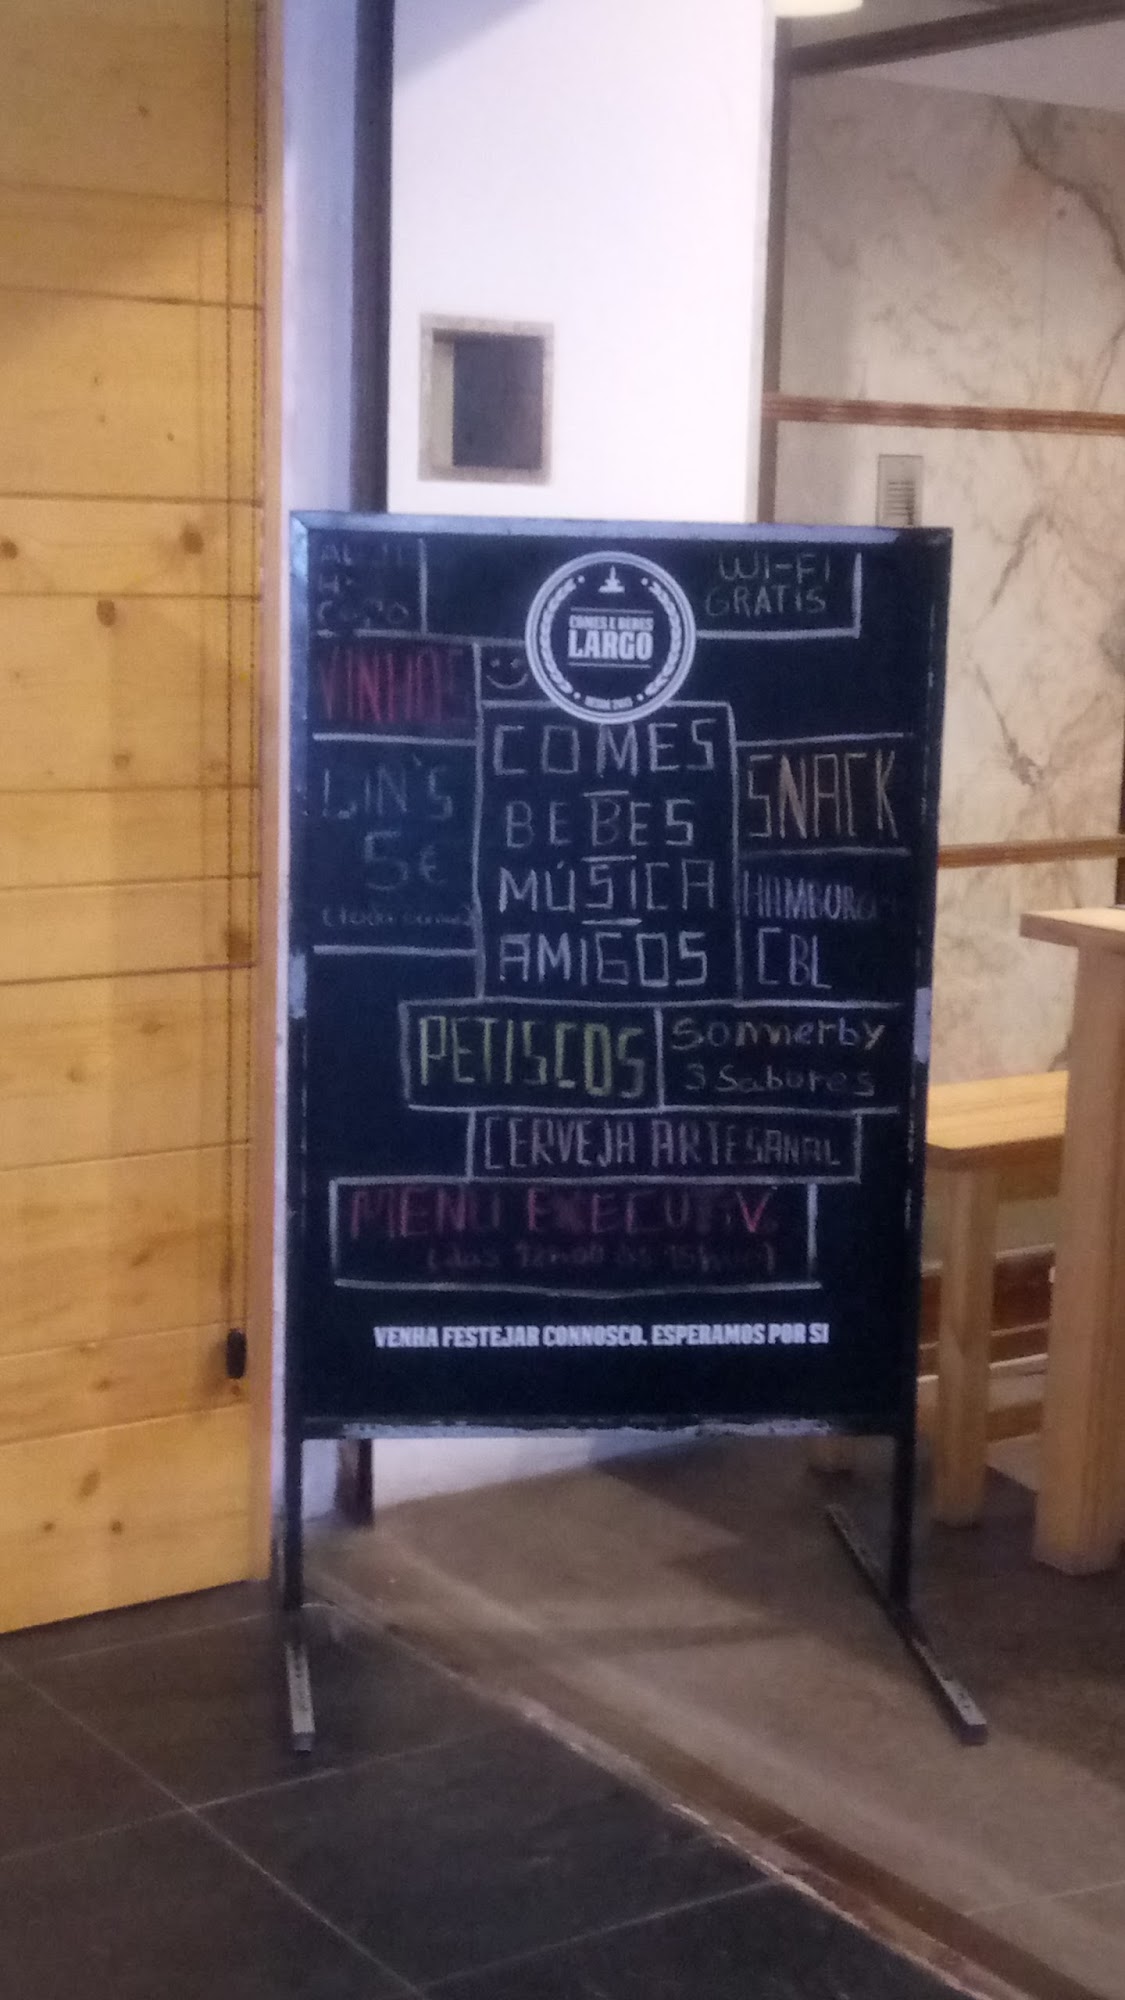 COPO
WI-FI
GRATIS
COMES E BEBES
LARGO
VINHOS
COMES
BEBES
MÚSICA
AMIGOS
GIN'S
5€
SNACK
HAMBURG
CBL
PETISCOS
Sommerby
3 Sabores
CERVEJA ARTESANAL
MENU EXECUTIV
(das 12h00 às 15h00)
VENHA FESTEJAR CONNOSCO. ESPERAMOS POR SI